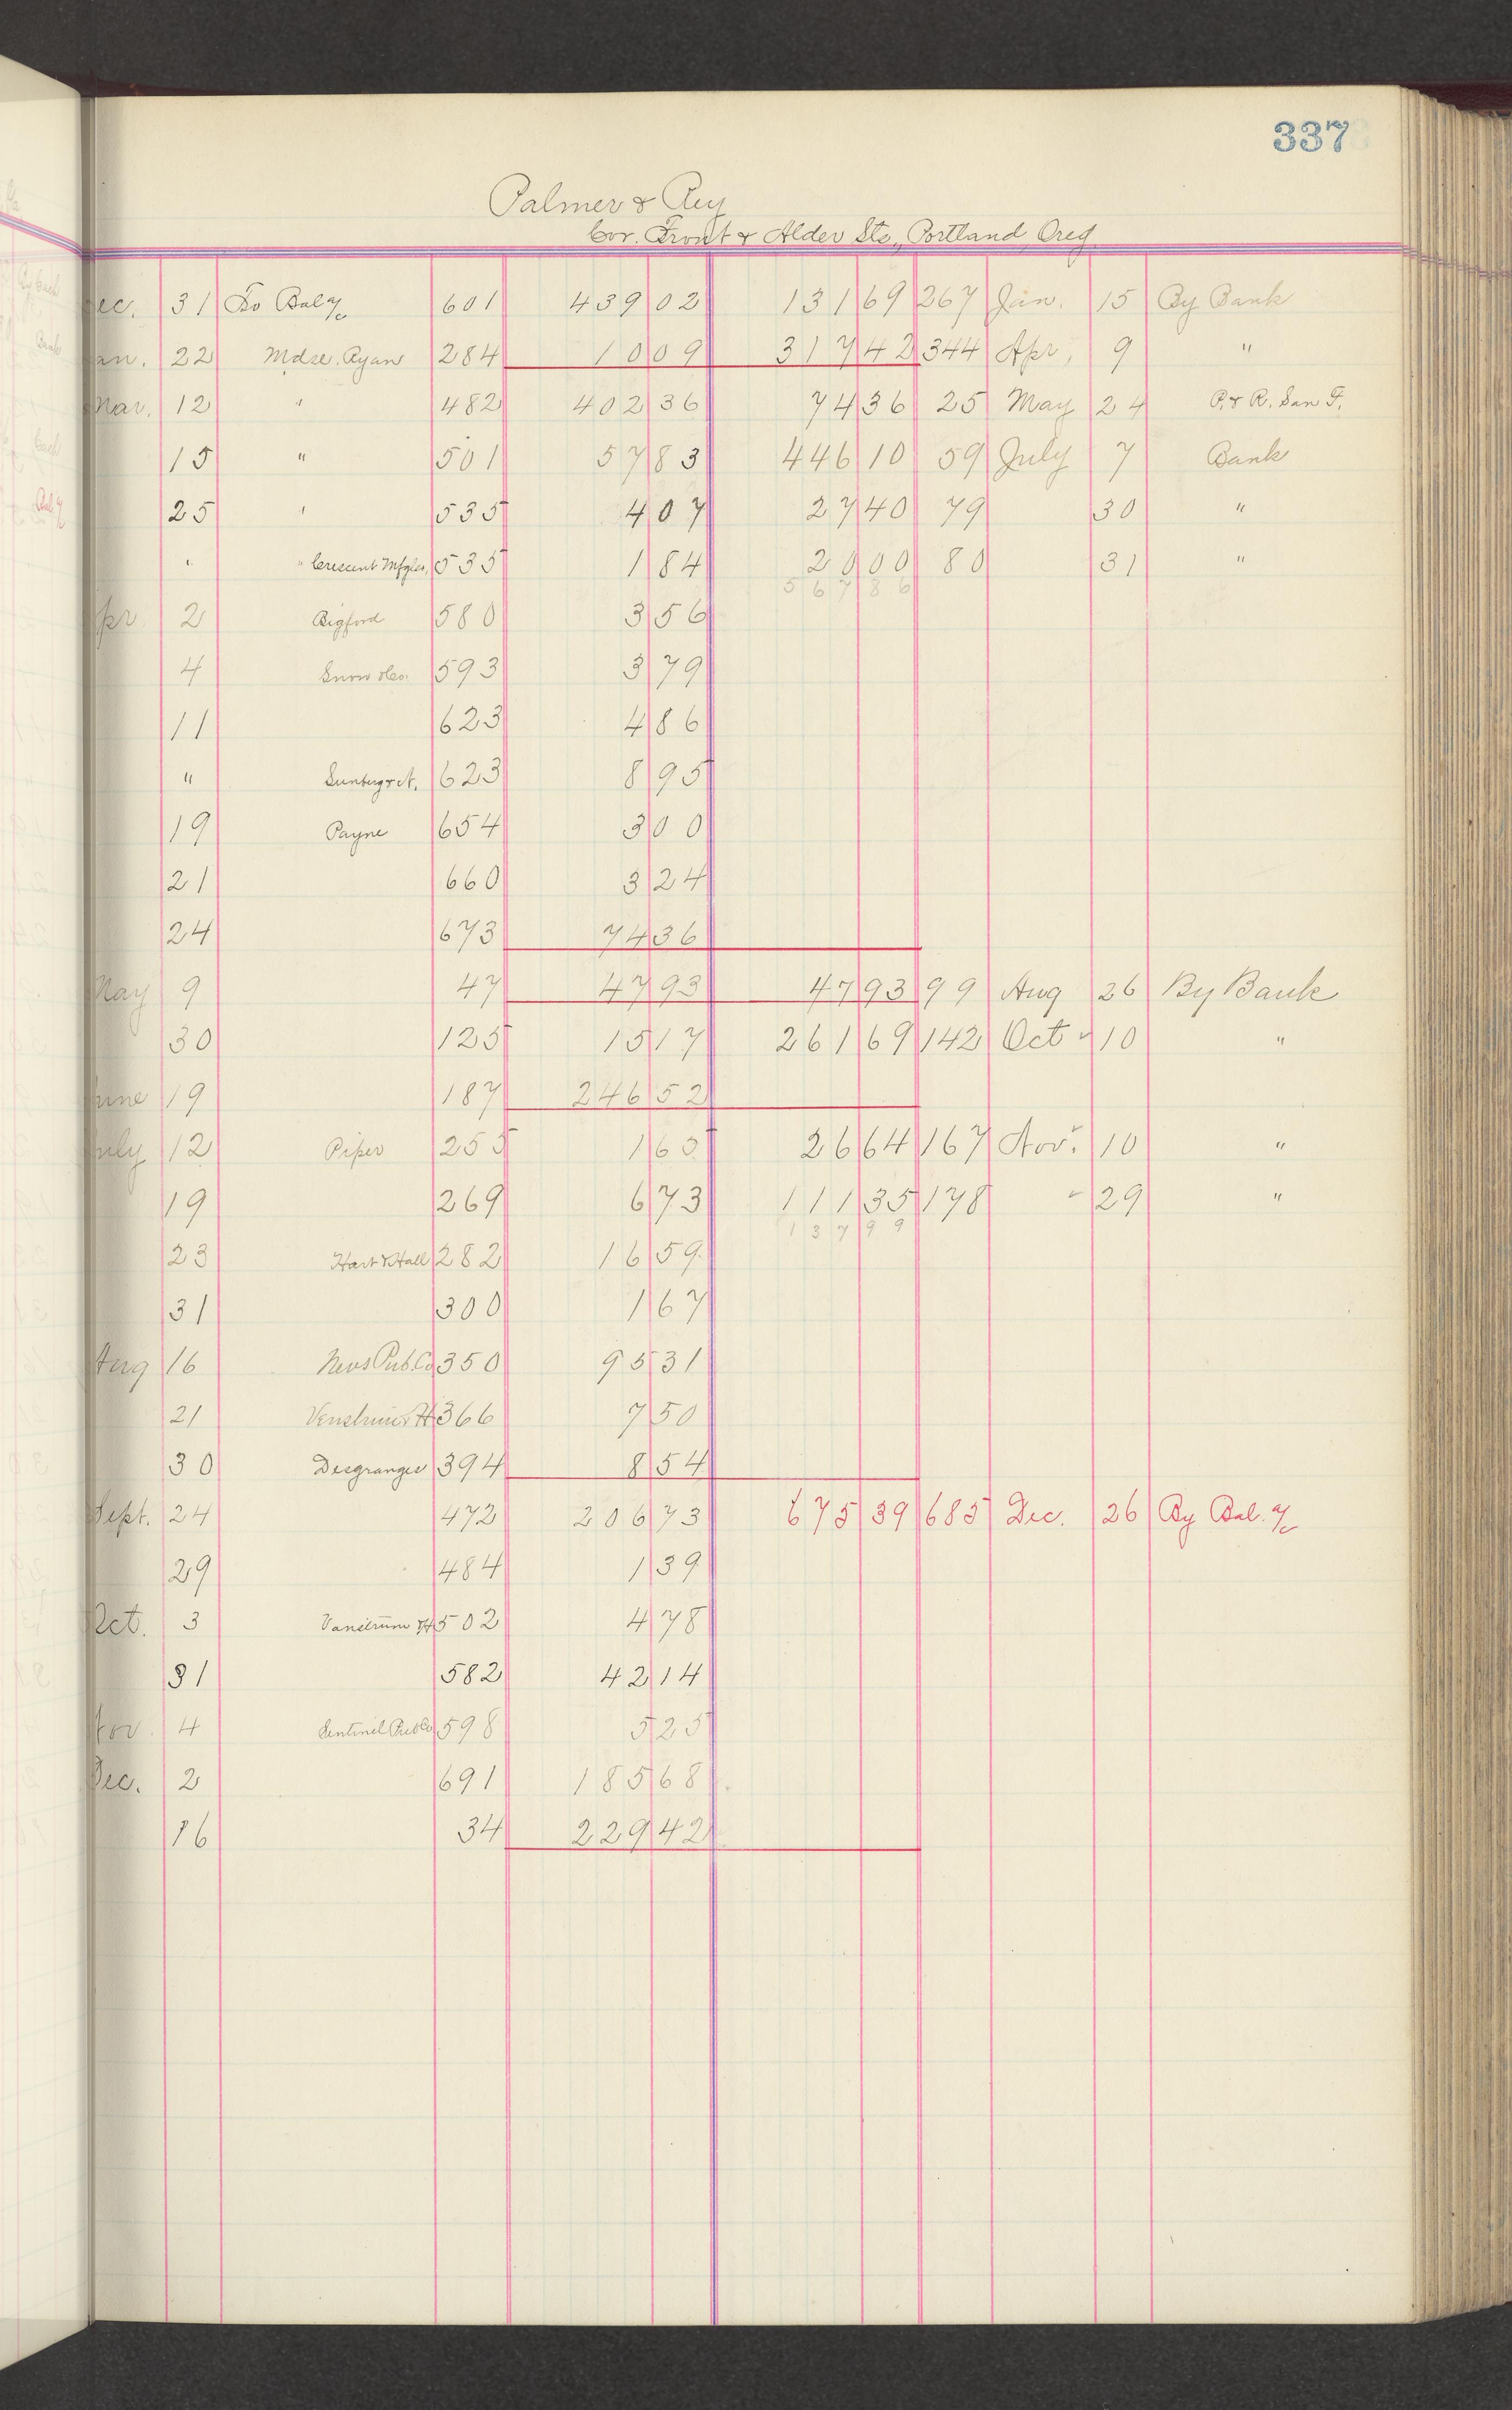 337
Palmer & Rey
Cor. Front & Alder Sts., Portland Oreg
ec. 31 To Bal a/c 601 439 02 131 69 267 Jan. 15 By Bank
an. 22 Mdse. Ryan 284 10 09 317 42 344 Apr, 9 "
Mar. 12 " 482 402 36 74 36 25 May 24 P. & R. San F.
15 " 501 57 83 446 10 59 July 7 Bank
25 " 535 4 07 27 40 79 30 "
" " Crescent Mfg Co. 535 1 84 20 00 80 31 "
567 86
pr 2 Bigford 580 3 56
4 Snow & Co. 593 3 79
11 623 4 86
" 623 8 95
19 Payne 654 3 00
21 660 3 24
24 673 74 36
May 9 47 47 93 47 93 99 Aug 26 By Bank
30 125 15 17 261 69 142 Oct " 10 "
une 19 187 246 52
July 12 Piper 255 1 65 26 64 167 Nov. 10 "
19 269 6 73 111 35 178 " 29 "
137 99
23 Hart & Hall 282 16 59
31 300 1 67
Aug 16 News Pub. Co 350 95 31
21 366 7 50
30 Desgranges 394 8 54
Sept. 24 472 206 73 675 39 685 Dec. 26 By Bal. a/c
29 484 1 39
Oct. 3 Vanstrum & H 502 4 78
31 582 42 14
Nov. 4 Sentinel Pub Co 598 5 25
Dec. 2 691 185 68
16 34 229 42